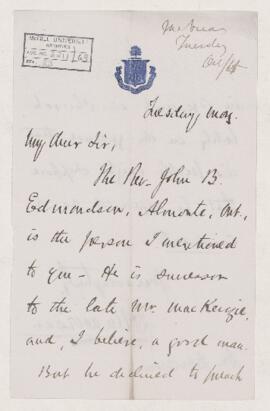 McGILL UNIVERSITY
ARCHIVES
Tuesday
Oct/
Tuesday mor.
My dear Sir,
The Rev. John B.
Edmondson, Almonte, Ont.,
is the person I mentioned
to you — He is successor
to the late Mr. MacKenzie,
and, I believe, a good man.
But he declined to preach